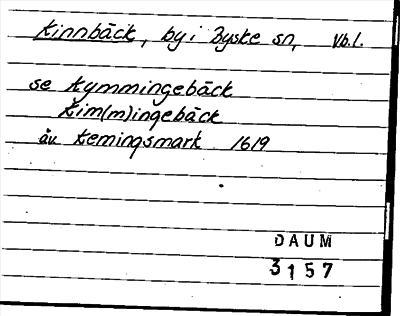 Kinnbäck, by i Byske sn, Vb.l.
se Kymmingebäck
Kim(m)ingebäck
äv Kemingsmark 1619
DAUM
3157